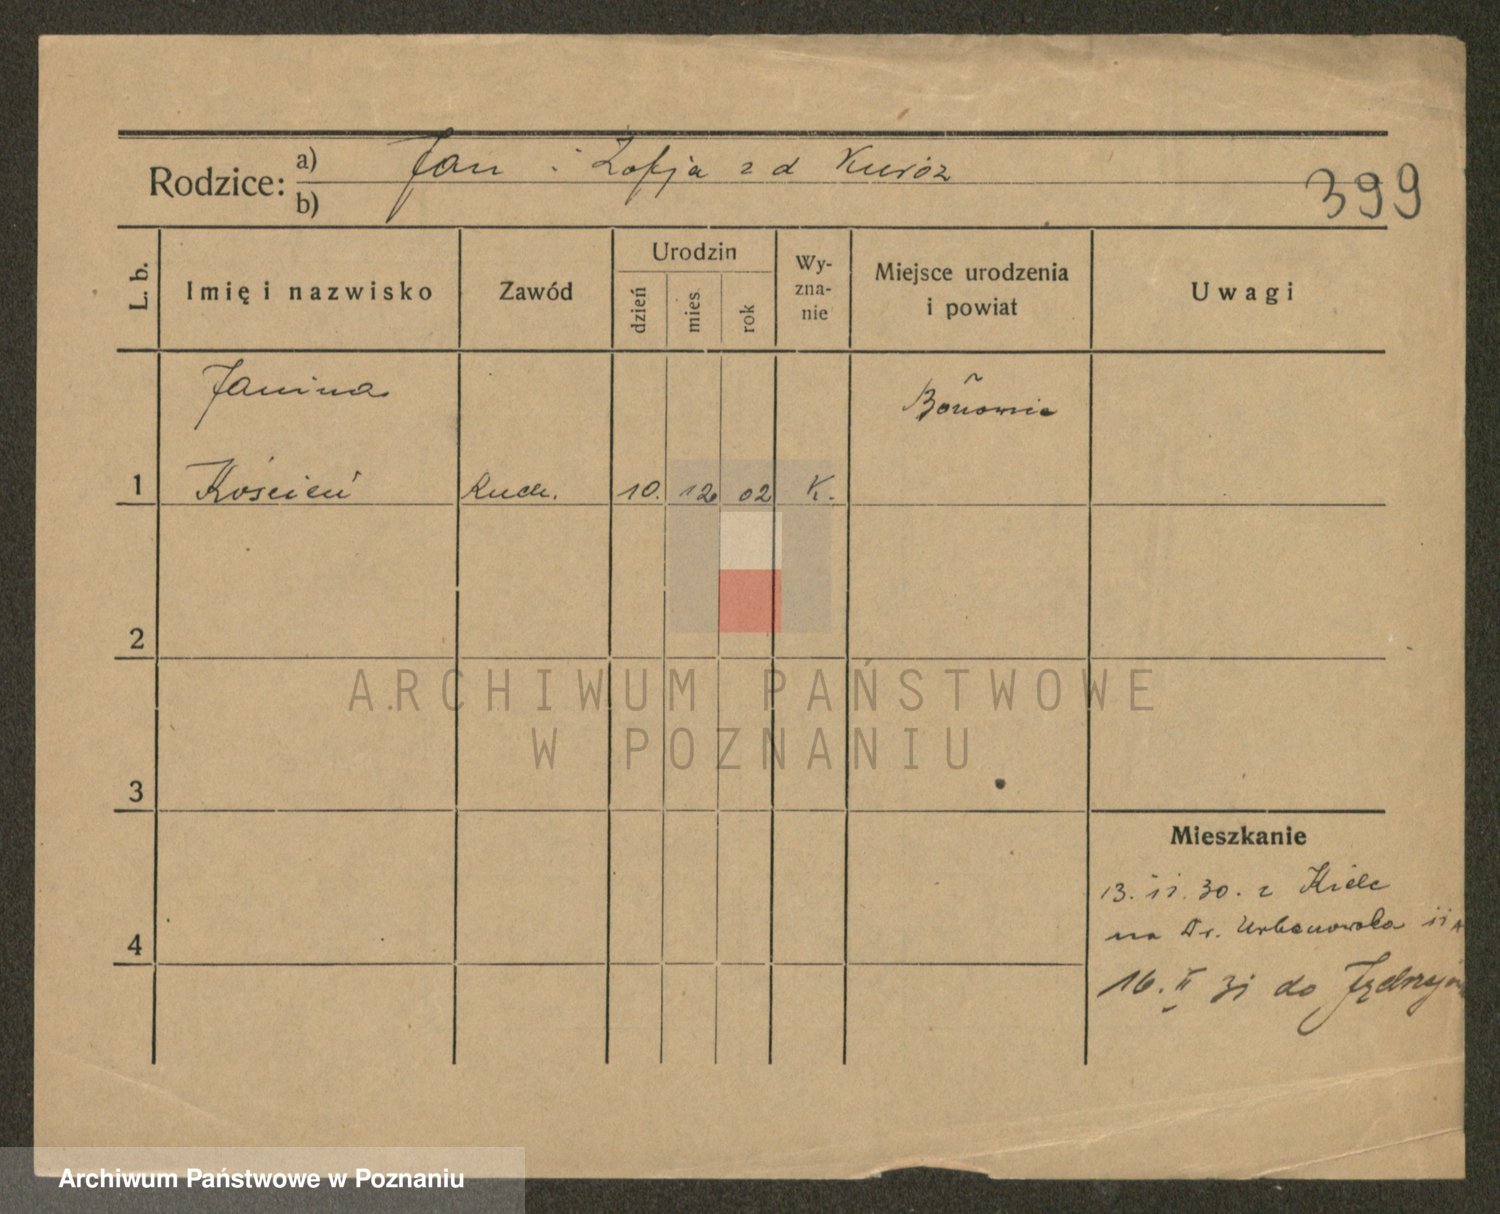 Rodzice: a) Jan i Zofja z d Kuróz
b)
399
L. b.
Imię i nazwisko
Zawód
Urodzin
dzień
mies.
rok
Wy-
zna-
nie
Miejsce urodzenia
i powiat
Uwagi
Janina
Bonownia
1 Koścień Kuch. 10. 12 02 K.
2
3
4
Mieszkanie
13. 11. 30. z Kielc
na Dr. Urbanowska 11A
16. II 31 do Jędrzejow
ARCHIWUM PAŃSTWOWE
W POZNANIU
Archiwum Państwowe w Poznaniu